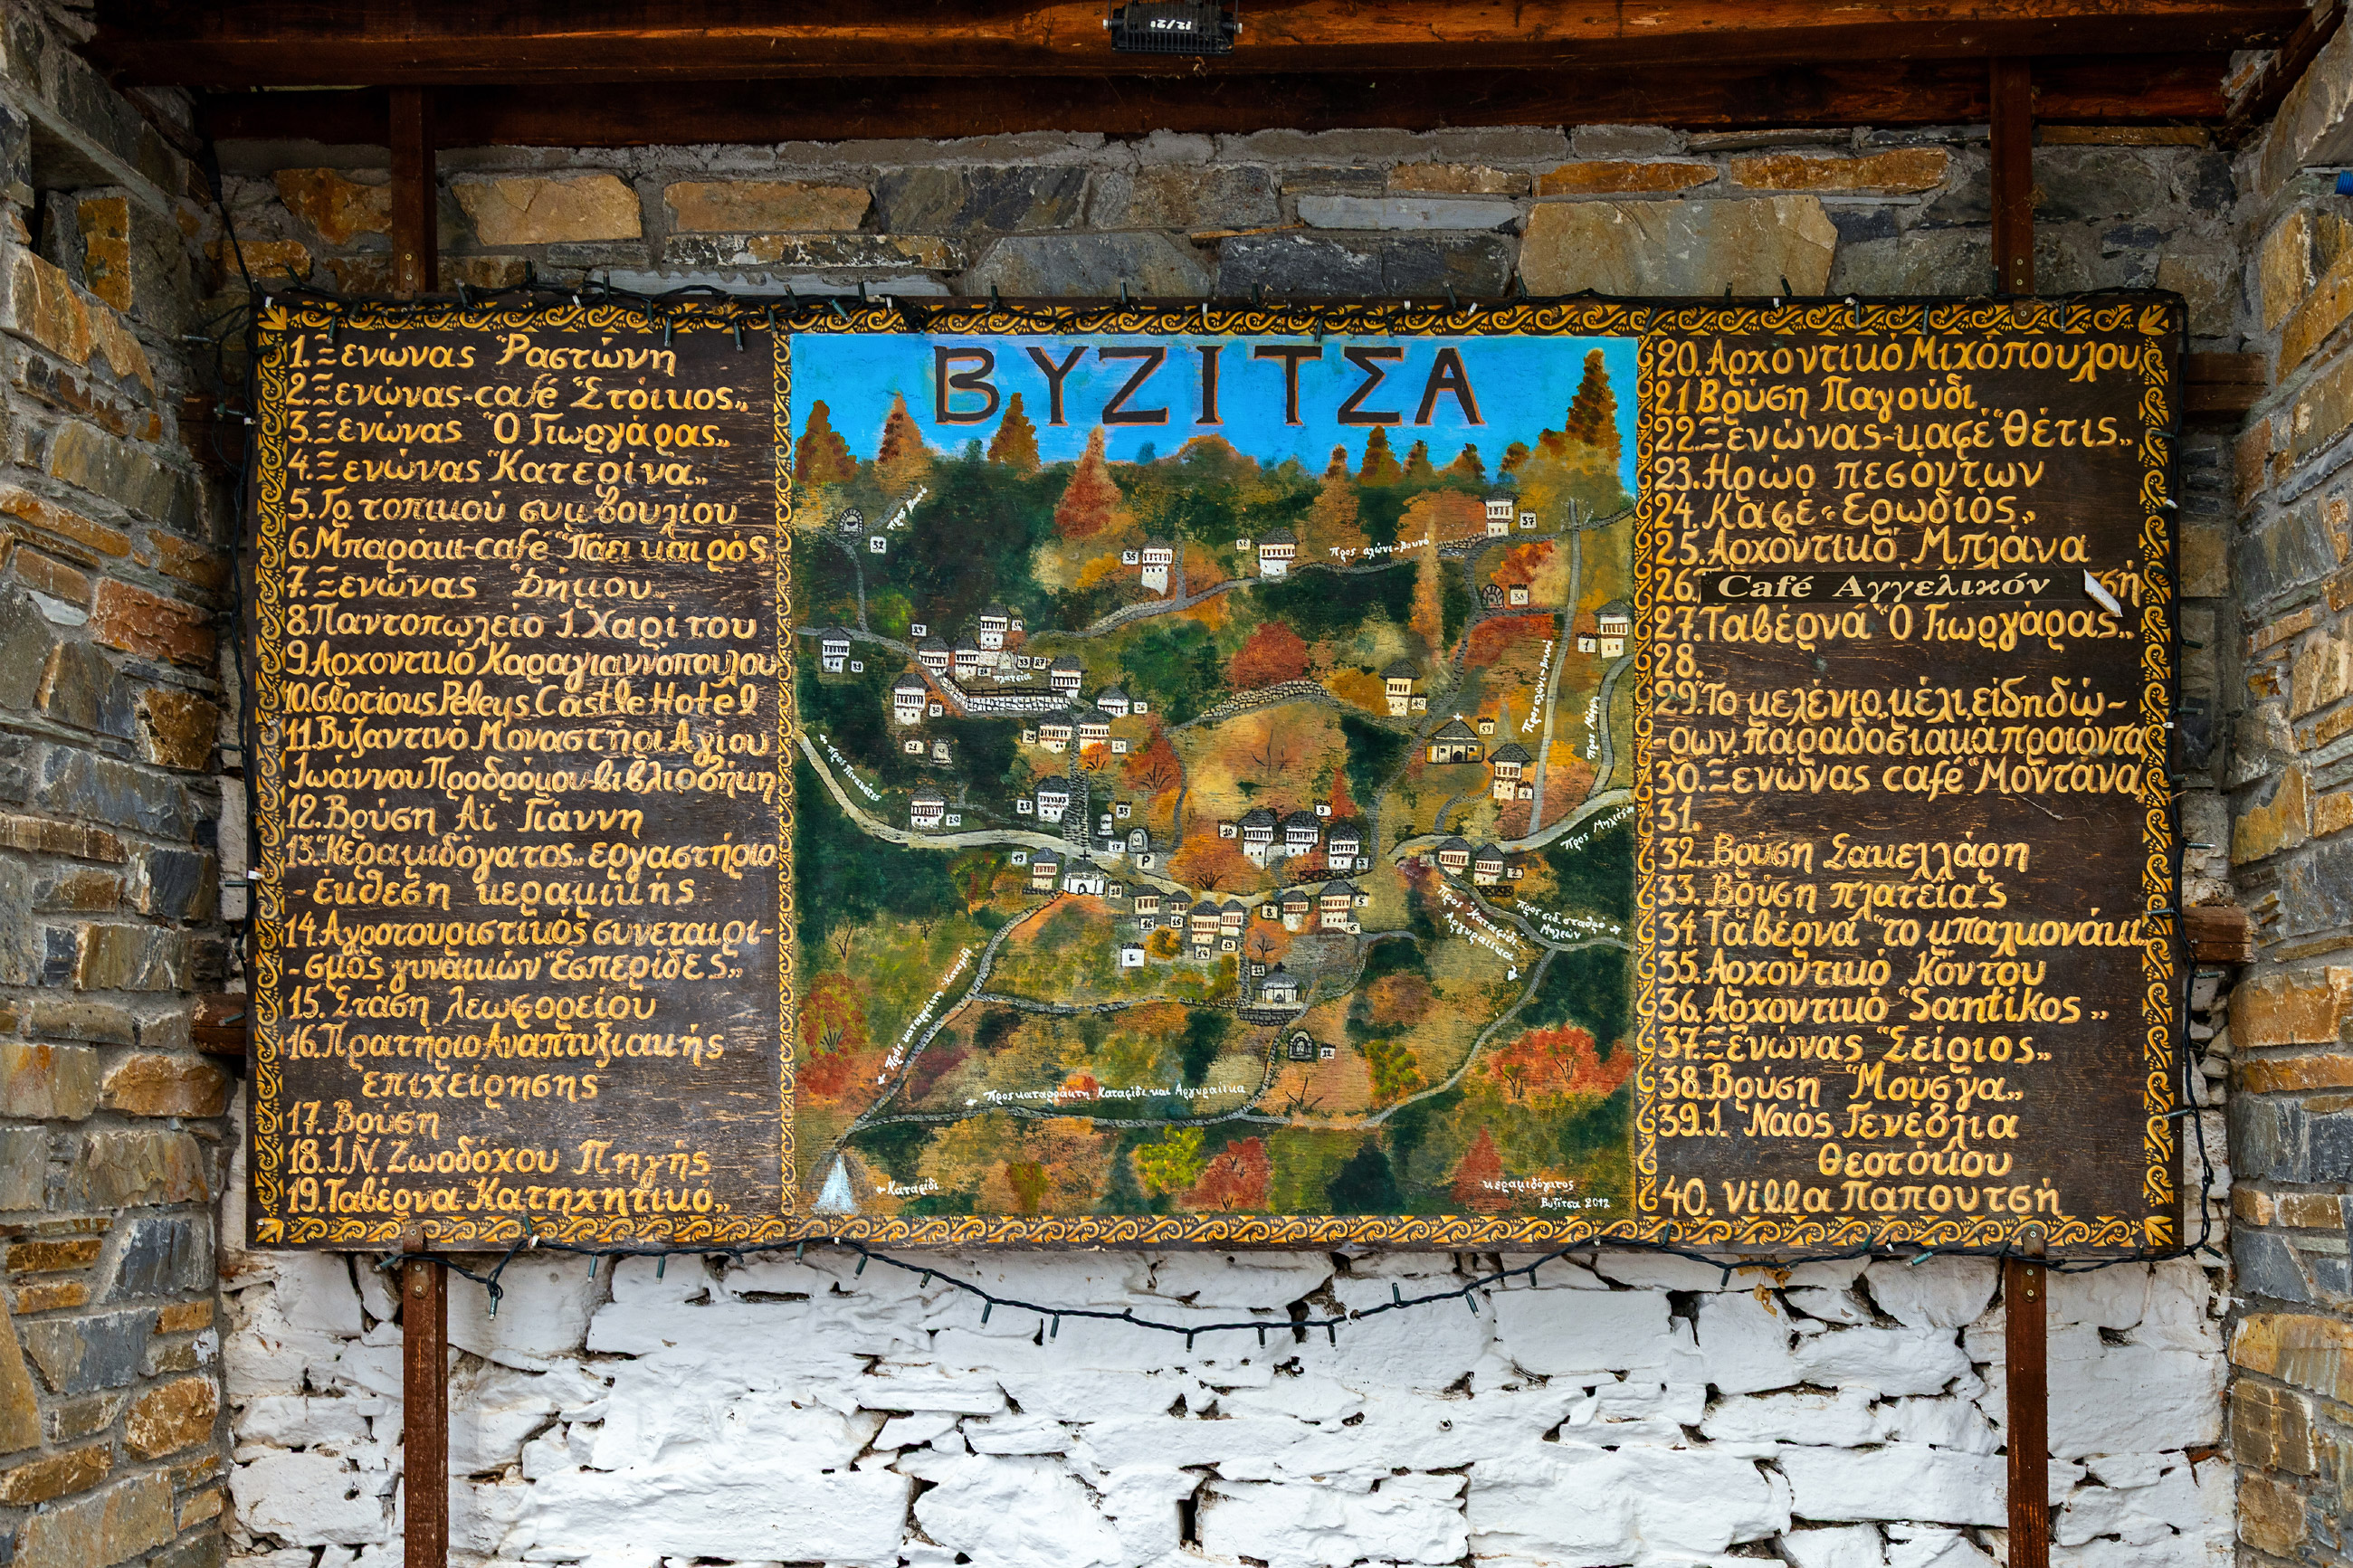 ΒΥΖΙΤΣΑ
1. Ξενώνας "Ραστώνη
2. Ξενώνας-café "Στόικος"
3. Ξενώνας "Ο Γιωργάρας"
4. Ξενώνας "Κατερίνα"
5. Γρ. τοπικού συμβουλίου
6. Μπαράκι-café "Πάει καιρός"
7. Ξενώνας "Δήμου"
8. Παντοπωλείο Ι. Χαρίτου
9. Αρχοντικό Καραγιαννόπουλου
10. Glorious Peleys Castle Hotel
11. Βυζαντινό Μοναστήρι Αγίου
Ιωάννου Προδρόμου-βιβλιοθήκη
12. Βρύση Αϊ Γιάννη
13. "Κεραμιδόγατος" εργαστήριο
-έκθεση κεραμικής
14. Αγροτουριστικός συνεταιρι-
-σμός γυναικών "Εσπερίδες"
15. Στάση λεωφορείου
16. Πρατήριο Αναπτυξιακής
επιχείρησης
17. Βρύση
18. Ι.Ν. Ζωοδόχου Πηγής
19. Ταβέρνα "Κατηχητικό"
προς βουνό
Προς αλώνι-βουνό
πλατεία
Προς αλώνι-βουνό
Προς Μηλιές
Προς Πινακάτες
Προς Καταφίδι-
Αργυραίικα
Προς σιδ. σταθμό
Μηλεών
Προς καταρράκτη Καταφίδι
Προς καταρράκτη Καταφίδι και Αργυραίικα
←Καταφίδι
κεραμιδόγατος
Βυζίτσα 2012
20. Αρχοντικό Μιχόπουλου
21 Βρύση Παγούδι
22. Ξενώνας-καφέ "Θέτις"
23. Ηρώο πεσόντων
24. Καφέ "Ερωδιός"
25. Αρχοντικό Μπλάνα
26. Café Αγγελικόν
27. Ταβέρνα "Ο Γιωργάρας"
28.
29. "Το μελένιο" μέλι, είδη δώ-
-ρων, παραδοσιακά προιόντα
30. Ξενώνας café "Μοντάνα"
31.
32. Βρύση Σακελλάρη
33. Βρύση πλατείας
34. Ταβέρνα "το μπαλκονάκι"
35. Αρχοντικό Κόντου
36. Αρχοντικό "Santikos"
37. Ξενώνας "Σείριος"
38. Βρύση "Μούσγα"
39. Ι. Ναός Γενέθλια
Θεοτόκου
40. Villa Παπουτσή